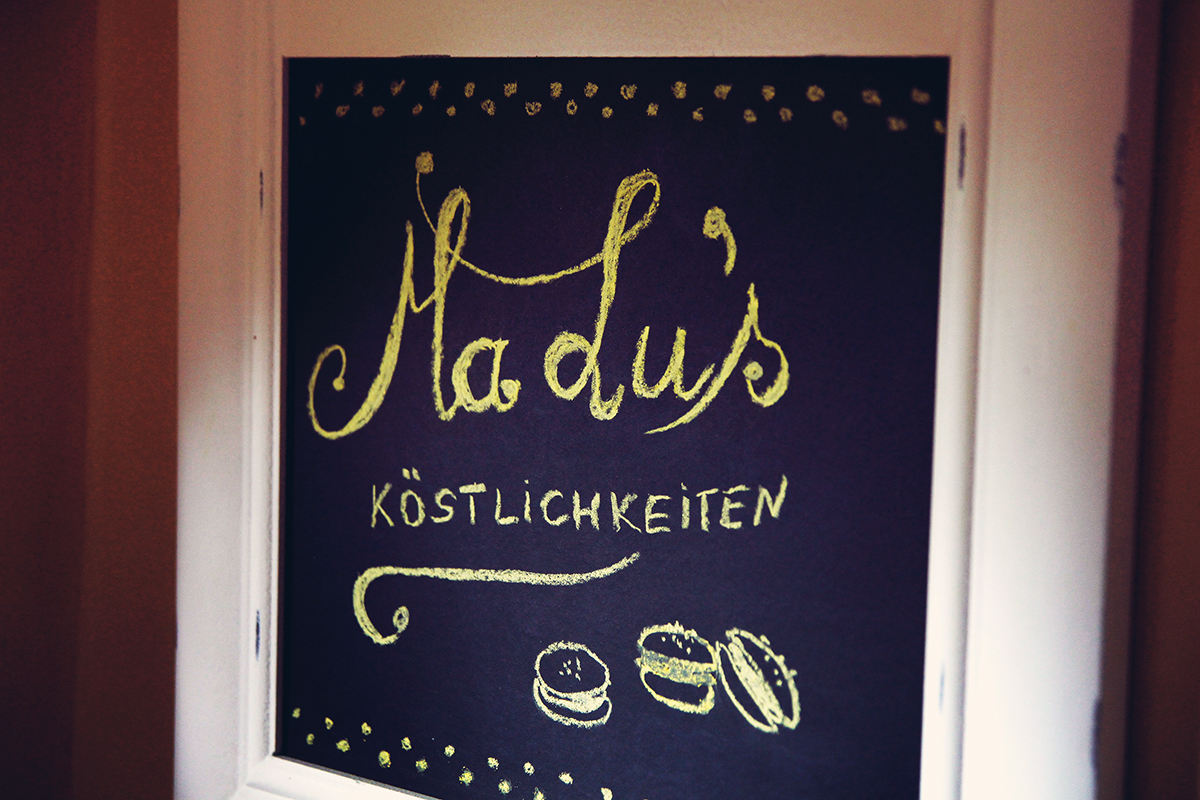 Madu's
KÖSTLiCHKEiTEN